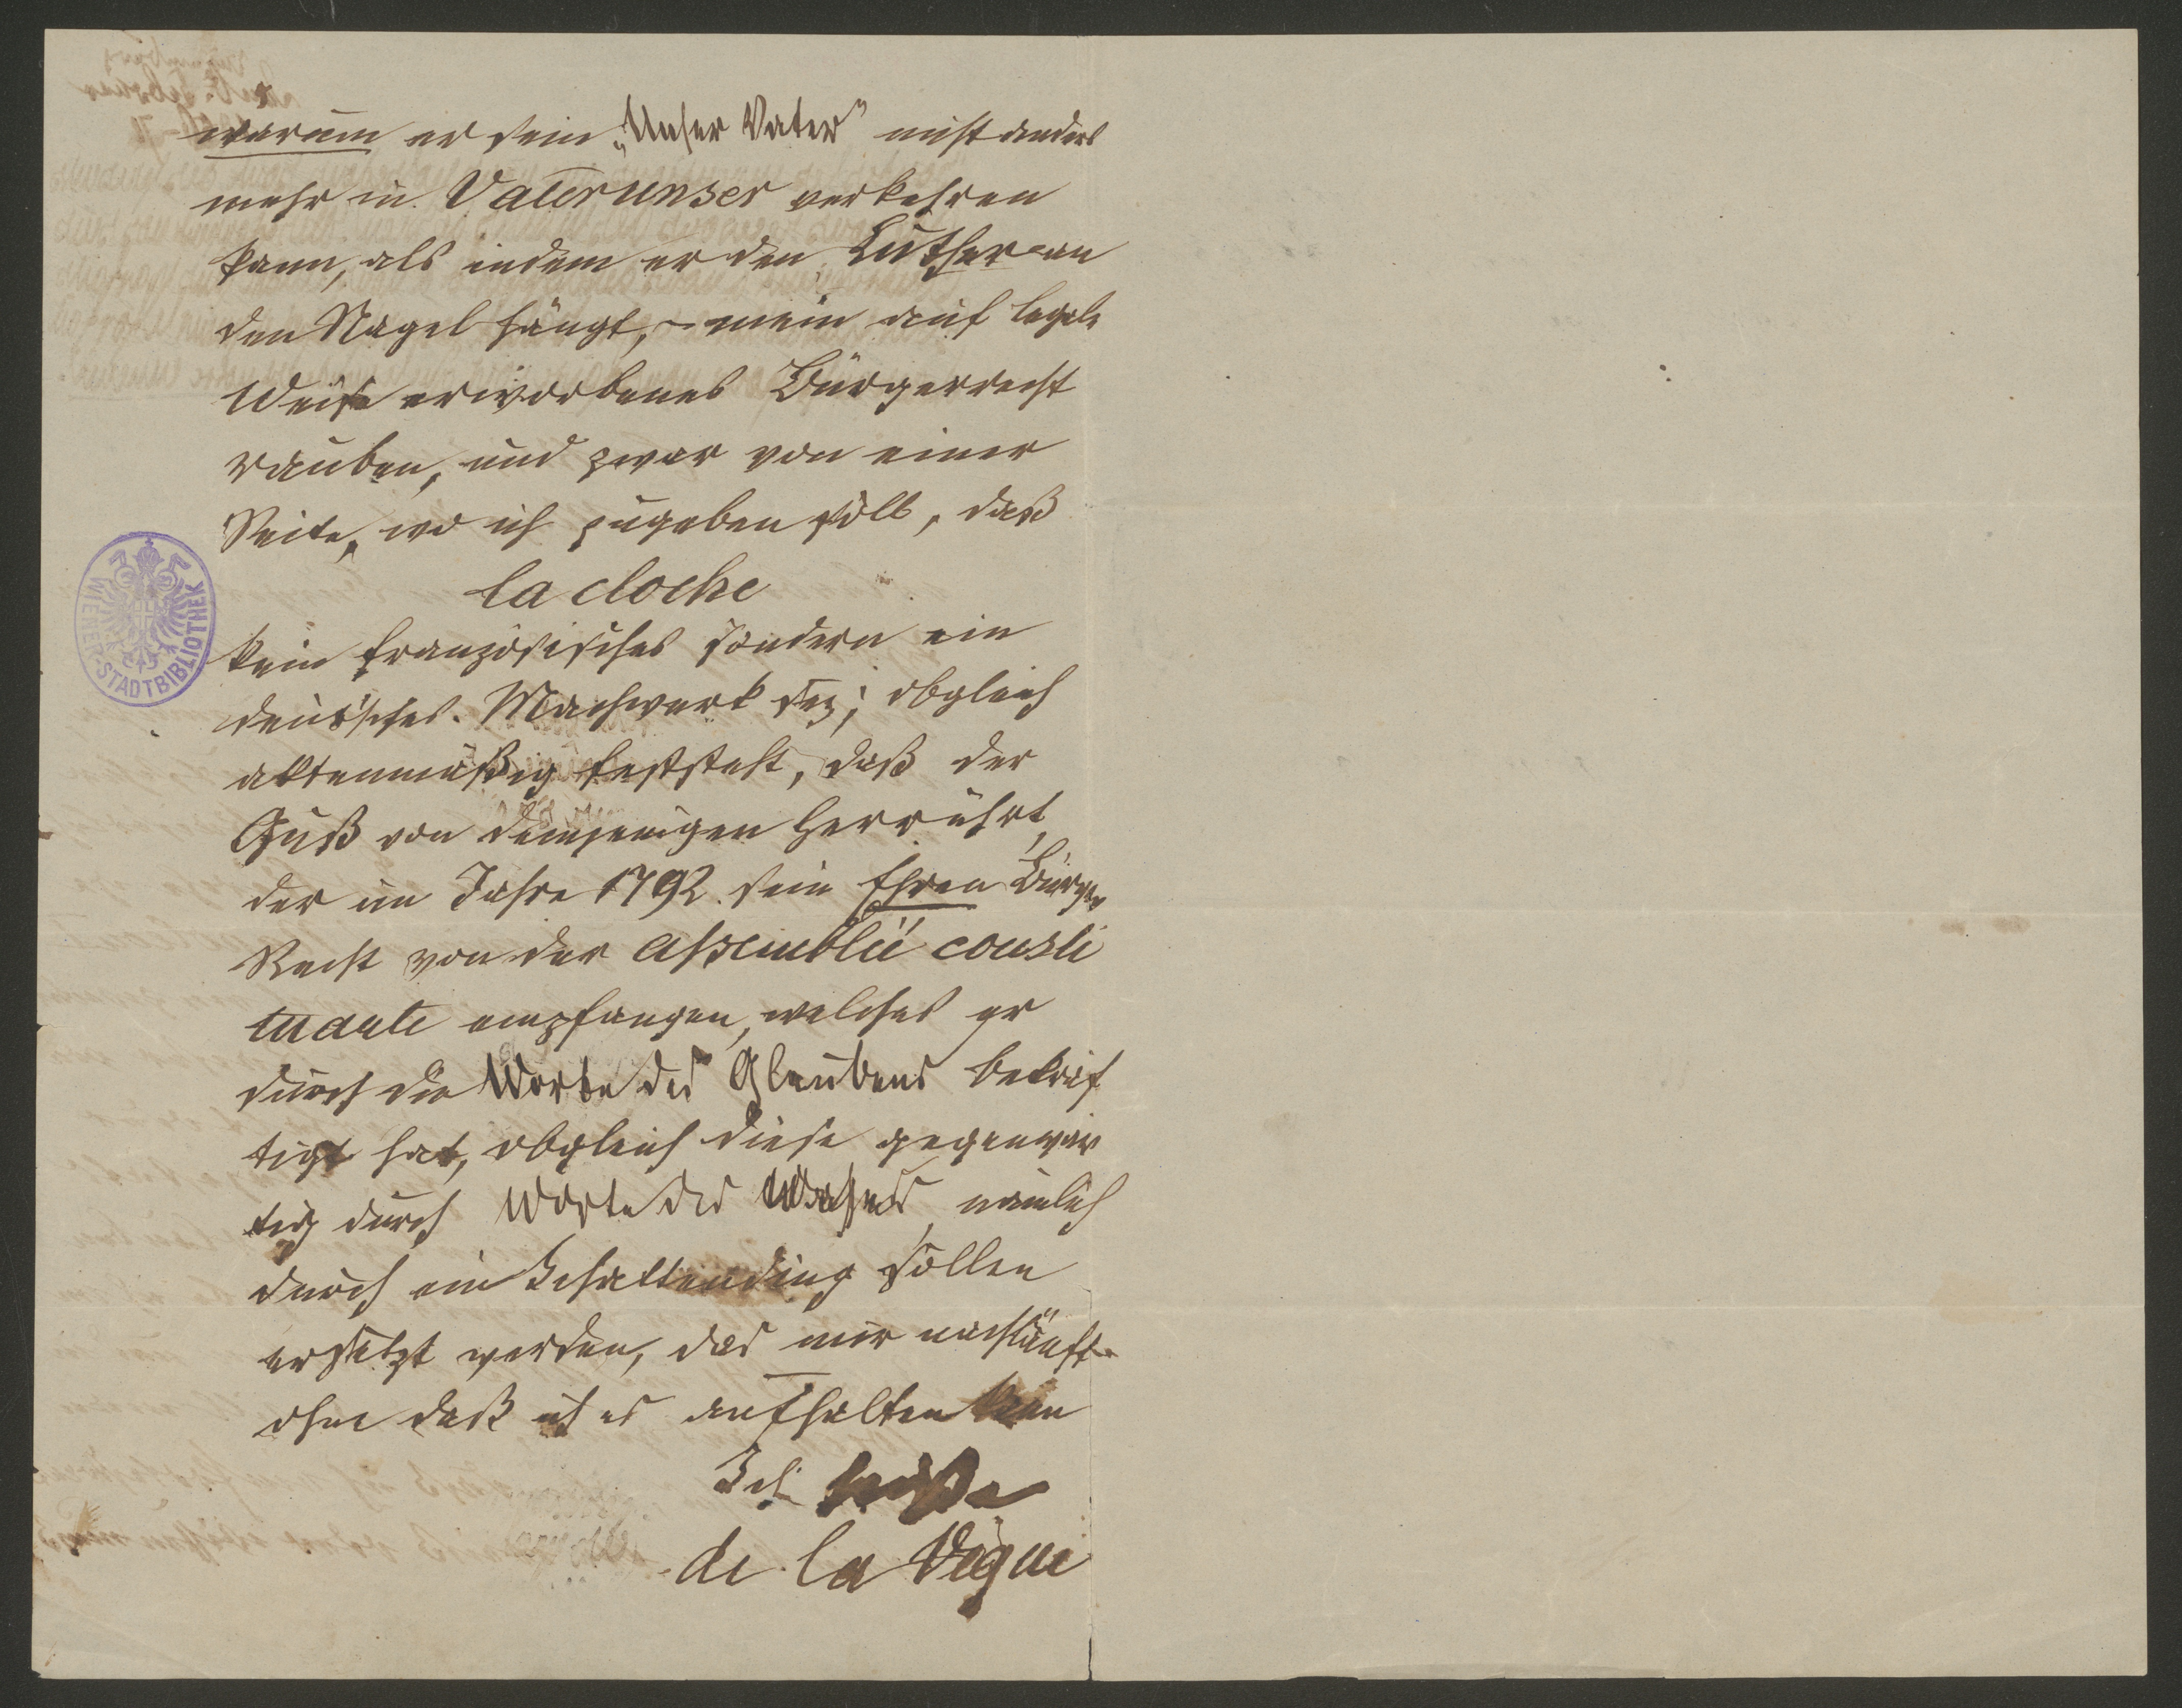 warum er sein „Unser Vater" nicht anders
mehr in Vaterunser verkehren
kann, als indem er den Luther an
den Nagel hängt, – mein auf legale
Weise erworbenes Bürgerrecht
rauben, und zwar von einer
Seite, wo ich zugeben soll, daß
la cloche
kein französisches sondern ein
deutsches Machwerk sey; obgleich
aktenmäßig feststeht, daß der
Guß von demjenigen herrührt,
der im Jahre 1792 sein Ehren Bürger
Recht von der assemblée consti
tuante empfangen, welches er
durch die Worte des Glaubens bekräf
tigt hat, obgleich diese gegenwär
tig durch Worte des Wahns, nämlich
durch ein Schattending sollen
ersetzt werden, das mir nachläuft
ohne daß ich es aufhalten kan
Ich heiße
de la
WIENER-STADTBIBLIOTHEK